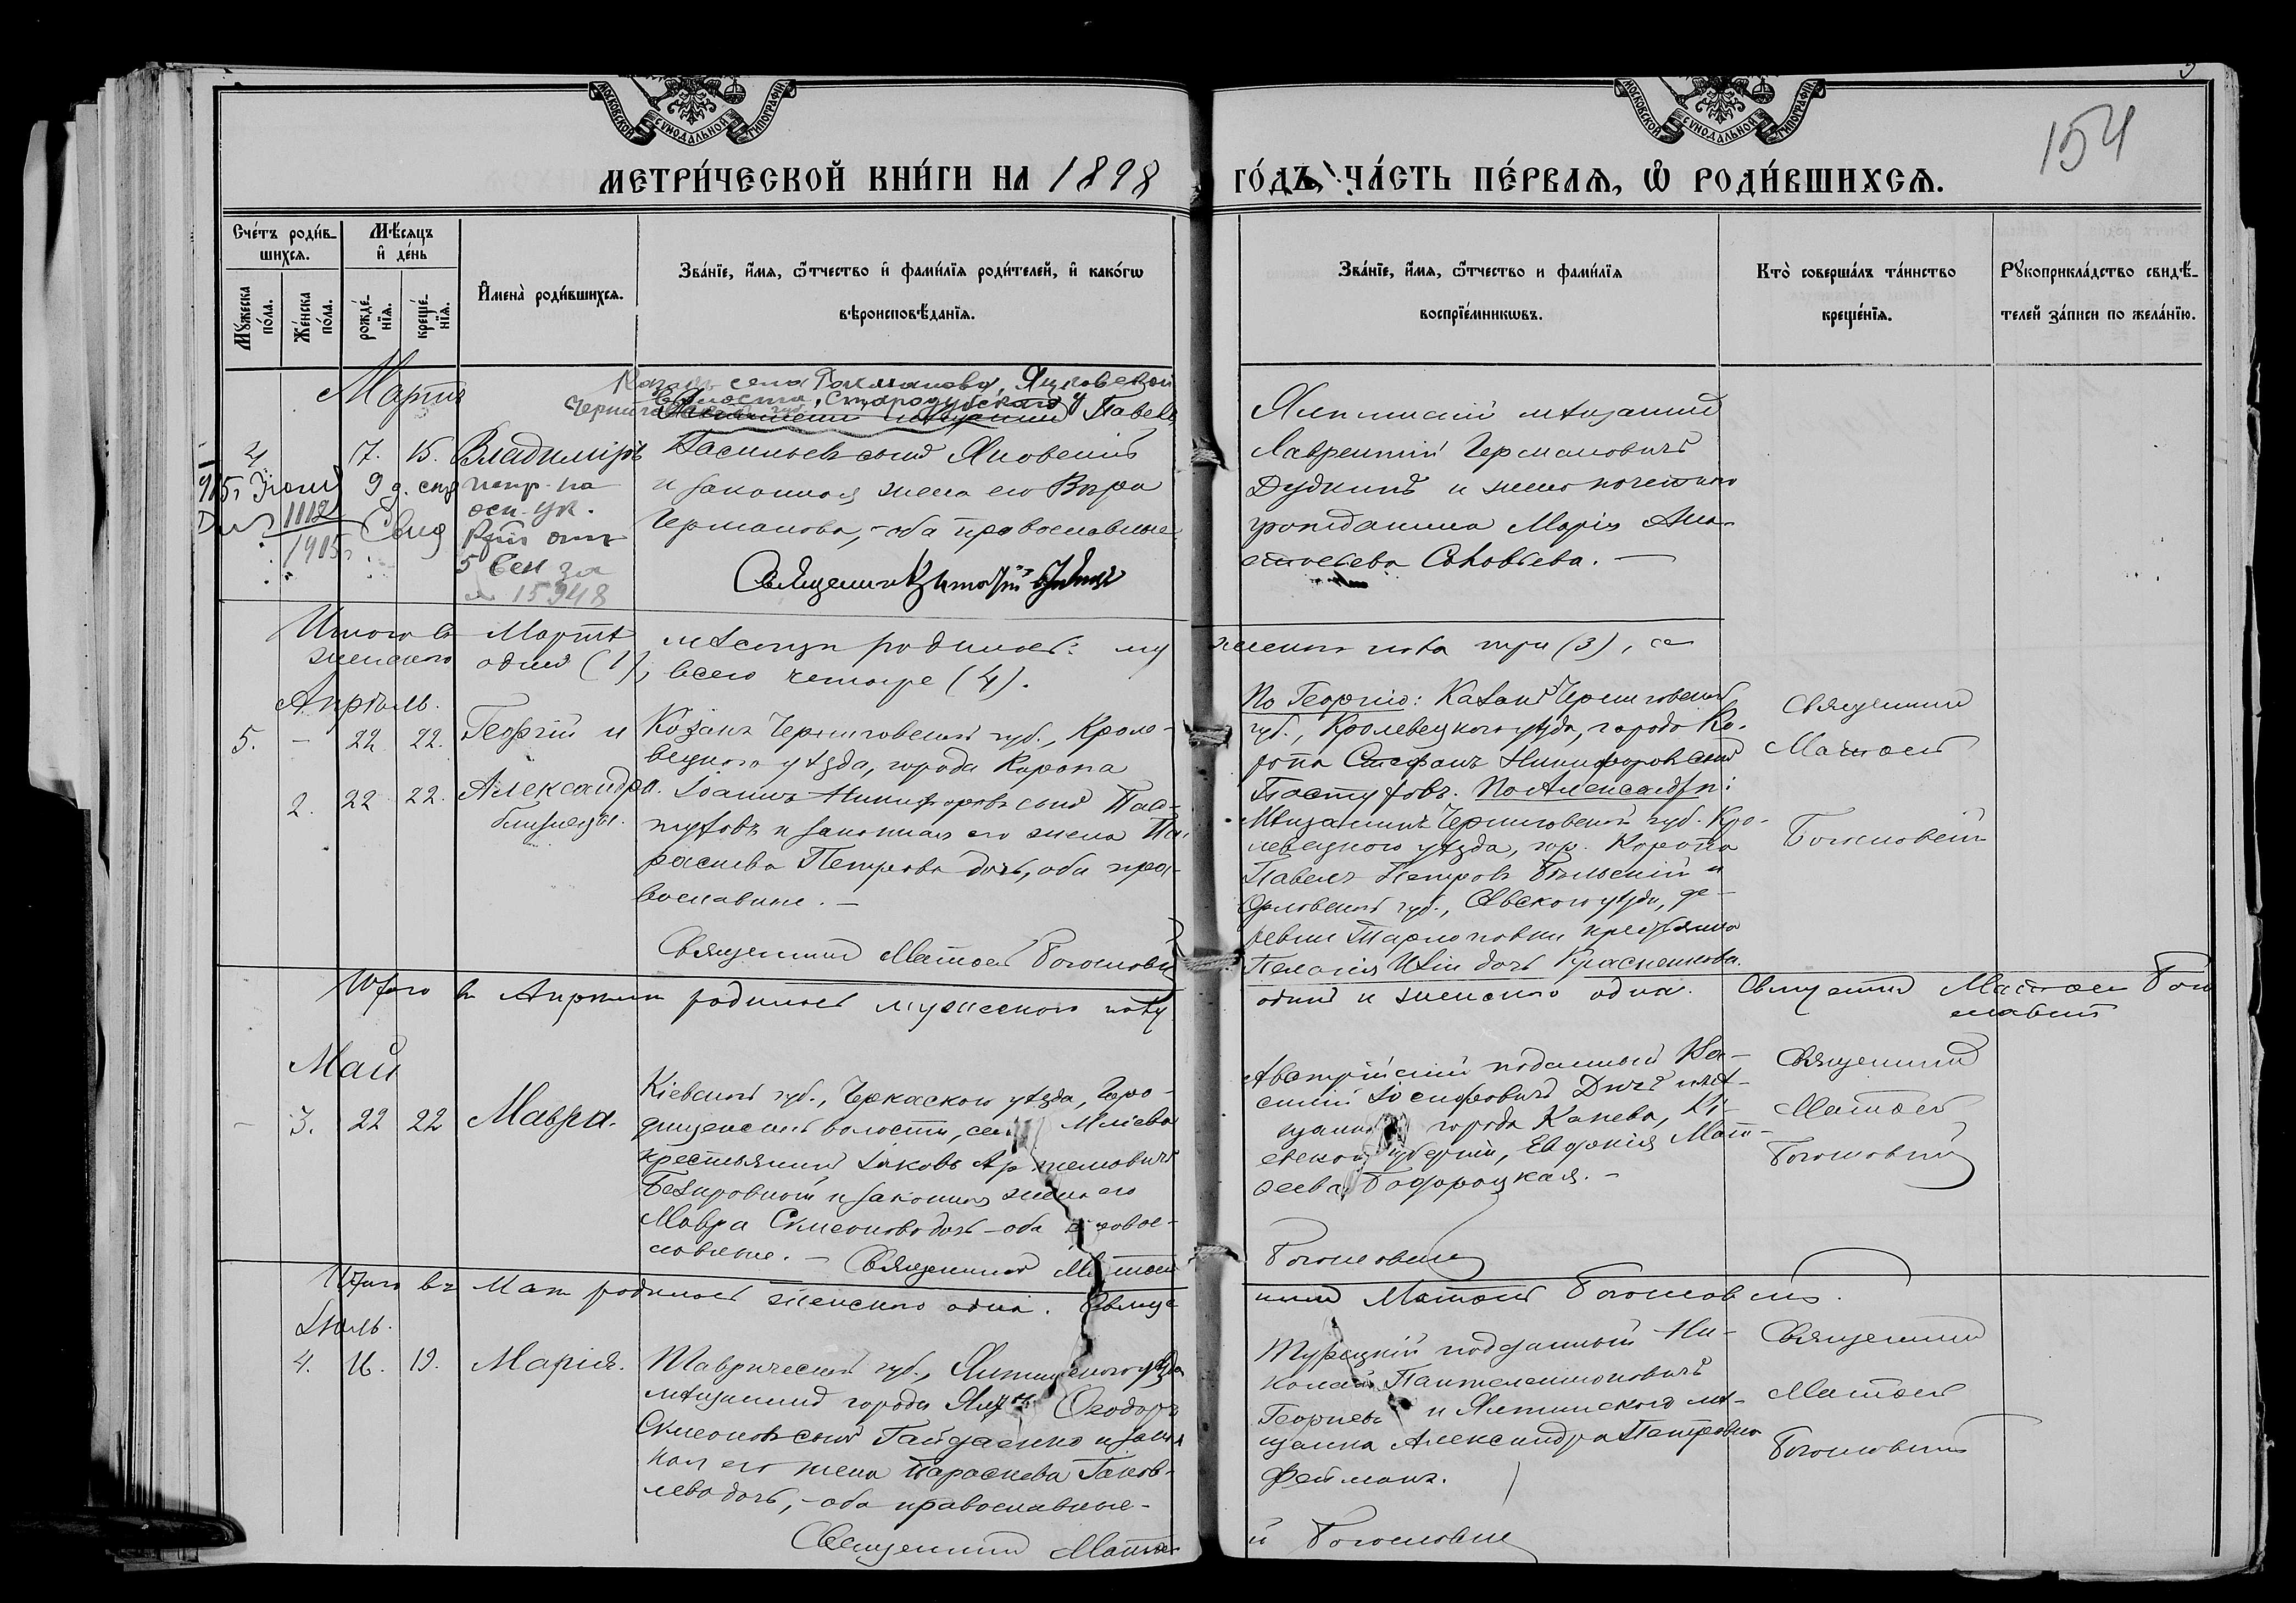 154
МОСКОВСКОЙ СѴНОДАЛЬНОЙ ТИПОГРАФІИ
МОСКОВСКОЙ СѴНОДАЛЬНОЙ ТИПОГРАФІИ
МЕТРИ́ЧЕСКОЙ КНИ́ГИ НА 1898 ГО́ДЪ, ЧА́СТЬ ПЕ́РВАѦ, Ѡ҆ РОДИ́ВШИХСѦ.
Сче́тъ роди́в-
шихсѧ.
Мꙋ́жеска по́ла.
Же́нска по́ла.
Мѣ́сѧцъ и҆ де́нь
рожде́-нїѧ.
креще́-нїѧ.
И҆мена̀ роди́вшихсѧ.
Зва́нїе, и҆́мѧ, ѻ҆́тчество и҆ фами́лїѧ роди́телей, и҆ како́гѡ
вѣроисповѣ́данїѧ.
Зва́нїе, и҆́мѧ, ѻ҆́тчество и фами́лїѧ
воспрїе́мникѡвъ.
Кто̀ соверша́лъ та́инство
креще́нїѧ.
Рꙋкоприкла́дство свидѣ́-
телей за́писи по жела́нїю.
Мартъ
Казакъ села
волости, Стародубскаго у
Павелъ
4 7. 15. Владиміръ
Васильевъ сынъ Яновскій
и законная жена его Вѣра
Германова, - оба православные
9 д. спр
1112
1905
5 Сен за
№ 15948
Священникъ
Ялтинскій мѣщанинъ
Лаврентій Германовичъ
Дудкинъ и жена почетнаго
гражданина Марія Ана-
стасьева Соловьева. —
Итого въ Мартѣ мѣсяцѣ родилось: мужескаго пола три (3), а
женскаго одинъ (1), всего четыре (4).
Апрѣль.
5. — 22 22. Георгій и
2. 22 22. Александра.
близнецы.
Козакъ Черниговской губ., Кроле-
вецкаго уѣзда, города Коропа
Іоаннъ Никифоровъ сынъ Пас-
туховъ и законная его жена Па-
раскева Петрова дочь, оба пра-
вославные. —
Священникъ Матѳей Богословскій
По Георгію: Казакъ Черниговской
губ., Кролевецкаго уѣзда, города Ко-
ропа Стефанъ Никифоровъ сынъ
Пастуховъ. По Александрѣ:
Мѣщанинъ Черниговской губ. Кро-
левецкаго уѣзда, гор. Коропа
Павелъ Петровъ Бѣльскій и
Орловской губ., Сѣвскаго уѣзда, де-
ревни крестьянка
Пелагія дочь
Священникъ
Матѳей
Богословскій
Итого въ Апрѣлѣ родилось мужескаго полу одинъ и женскаго одна. Священникъ Матѳей Бого
словскій
Май
— 3. 22 22 Мавра.
Кіевской губ., Черкаскаго уѣзда, Горо-
дищенской волости, села Мліева
крестьянинъ Іаковъ Артемовичъ
и законная жена его
Мавра Симеонова дочь - оба правос-
лавные. — Священникъ Матѳей Богословскій
Австрійскій подданный Ва-
силій Іосифовичъ и мѣ-
щанка города Канева, Кі-
евской губерніи, Евдокія Мат-
ѳеева —
Священникъ
Матѳей
Богословскій
Итого въ Маѣ родилось женскаго одна. Священникъ Матѳей Богословскій.
Іюль.
4. 16. 19. Марія.
Таврической губ., Ялтинскаго уѣзда
мѣщанинъ города Ялты Ѳеодоръ
Симеоновъ сынъ Гайдаенко и закон-
ная его жена Параскева Іаков-
лева дочь, - оба православные. -
Священникъ Матѳей Богословскій
Турецкій подданный Ни-
колай Пантелеимоновичъ
Георгіевъ и Ялтинская мѣ-
щанка Александра Петровна
Фейманъ.
Священникъ
Матѳей
Богословскій